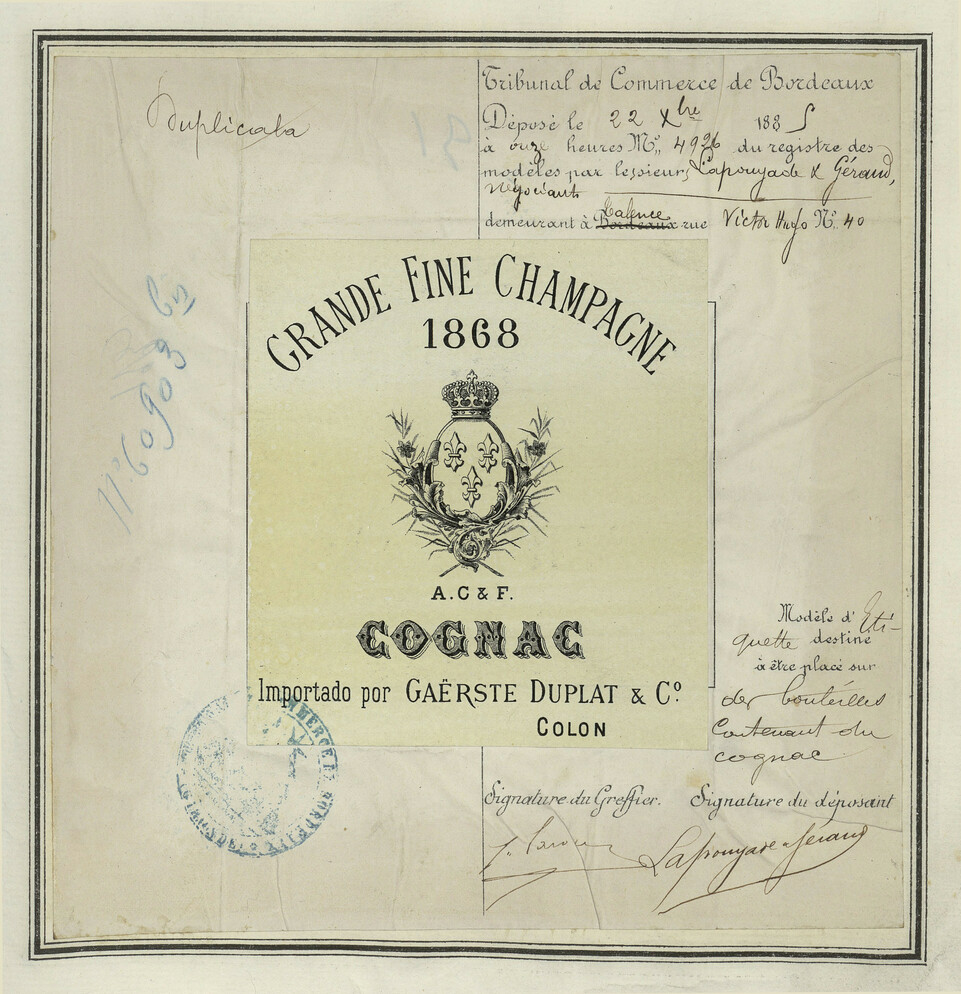 Duplicata
Tribunal de Commerce de Bordeaux
Déposé le 22 Xbre 1885
à onze heures Nº 4926 du registre des
modèles par les sieurs Lapouyade & Géraud,
négociants
demeurant à Talence Bordeaux rue Victor Hugo Nº 40
Nº 60903
GRANDE FINE CHAMPAGNE
1868
A.C & F.
COGNAC
Importado por GAËRSTE DUPLAT & Cº.
COLON
Modèle d'Eti-
quette destiné
à être placé sur
des bouteilles
contenant du
cognac
Signature du Greffier. Signature du déposant
Lapouyade & Géraud